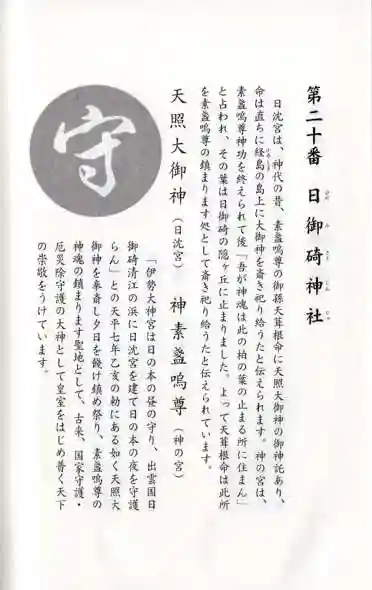 第二十番 日御碕神社
ひのみさきじんじゃ
日沈宮は、神代の昔、素盞嗚尊の御孫天葺根命に天照大御神の御神託あり、
命は直ちに経島の島上に大御神を斎き祀り給うたと伝えられます。神の宮は、
素盞嗚尊神功を終えられて後「吾が神魂は此の柏の葉の止まる所に住まん」
と占われ、その葉は日御碕の隠ヶ丘に止まりました。よって天葺根命は此所
を素盞嗚尊の鎮まります処として斎き祀り給うたと伝えられています。
天照大御神(日沈宮) 神素盞嗚尊(神の宮)
守
「伊勢大神宮は日の本の昼の守り、出雲国日
御碕清江の浜に日沈宮を建て日の本の夜を守護
らん」との天平七年乙亥の勅にある如く天照大
御神を奉斎し夕日を餞け鎮め祭り、素盞嗚尊の
神魂の鎮まります聖地として、古来、国家守護・
厄災除守護の大神として皇室をはじめ普く天下
の崇敬をうけています。